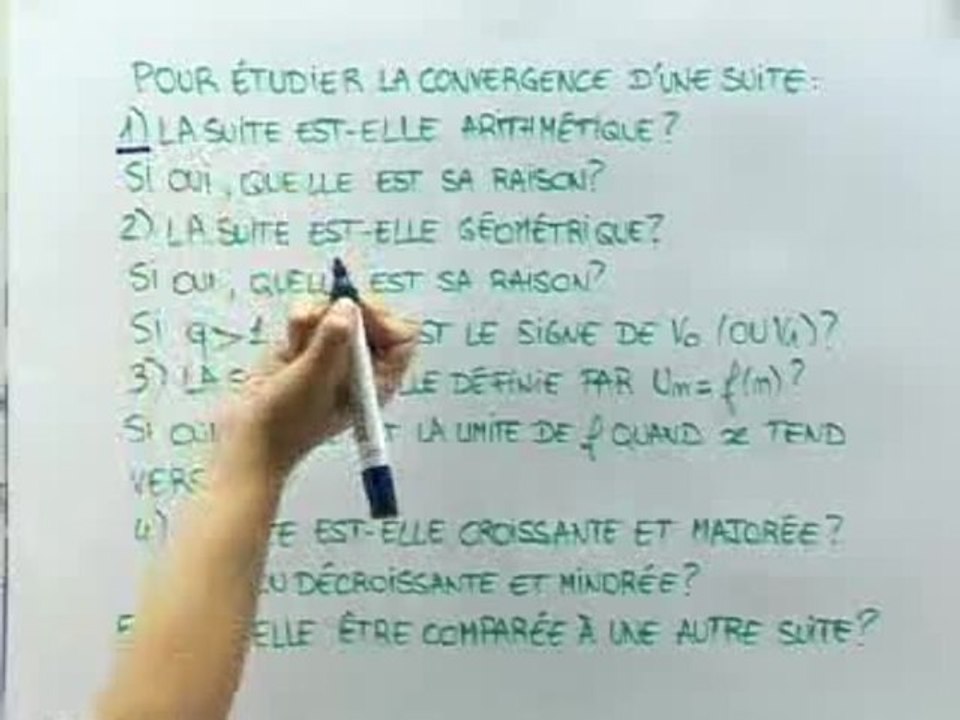 POUR ÉTUDIER LA CONVERGENCE D'UNE SUITE:
1) LA SUITE EST-ELLE ARITHMÉTIQUE?
SI OUI, QUELLE EST SA RAISON?
2) LA SUITE EST-ELLE GÉOMÉTRIQUE?
SI OUI, EST SA RAISON?
SI q>1 LE SIGNE DE V₀ (OU V₁)?
3) LA DÉFINIE PAR Um = f(m)?
SI LA LIMITE DE f QUAND x TEND
VERS
4) EST-ELLE CROISSANTE ET MAJORÉE?
DÉCROISSANTE ET MINORÉE?
ELLE ÊTRE COMPARÉE À UNE AUTRE SUITE?